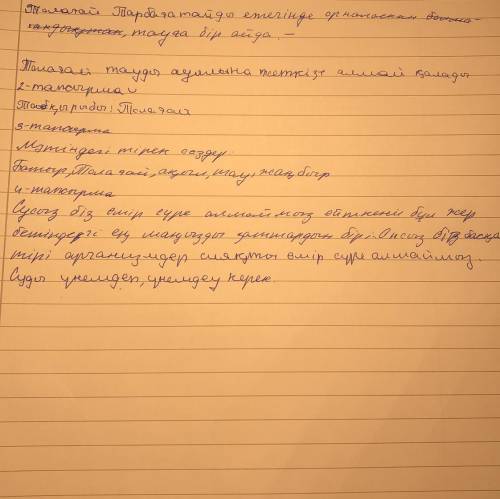 Толағай Тарбағатайды етегінде орналасқан
тауда бір айда. –
Толағай тауды ауылына жеткізе алмай қалады
2-тапсырма
Тақырыбы: Толағай
3-тапсырма
Мәтіндегі тірек сөздер.
Батыр, Толағай, ақыл, тау, жаңбыр
4-тапсырма
Сусыз біз өмір сүре алмаймыз өйткені бұл жер
бетіндегі ең маңызды заттардың бірі. Онсыз біз басқа
тірі организмдер сияқты өмір сүре алмаймыз.
Суды үнемдеп, үнемдеу керек.